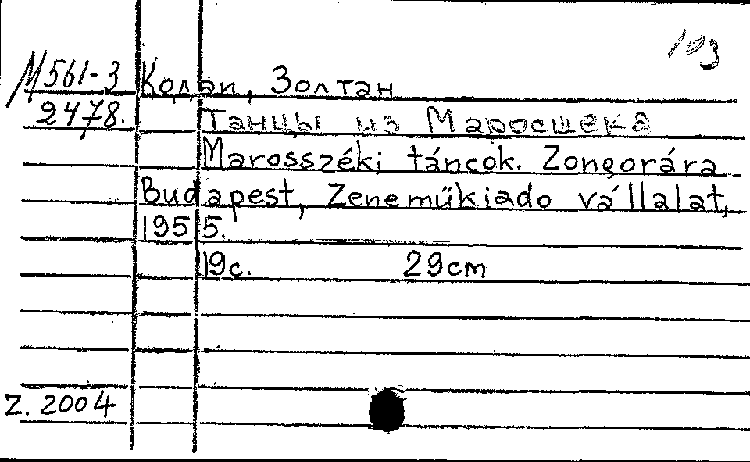 103
М561-3 Кодаи, Золтан
2478. Танцы из Маросшека
Marosszéki táncok. Zongorára
Budapest, Zeneműkiado vállalat,
1955.
19с. 29cm
Z. 2004